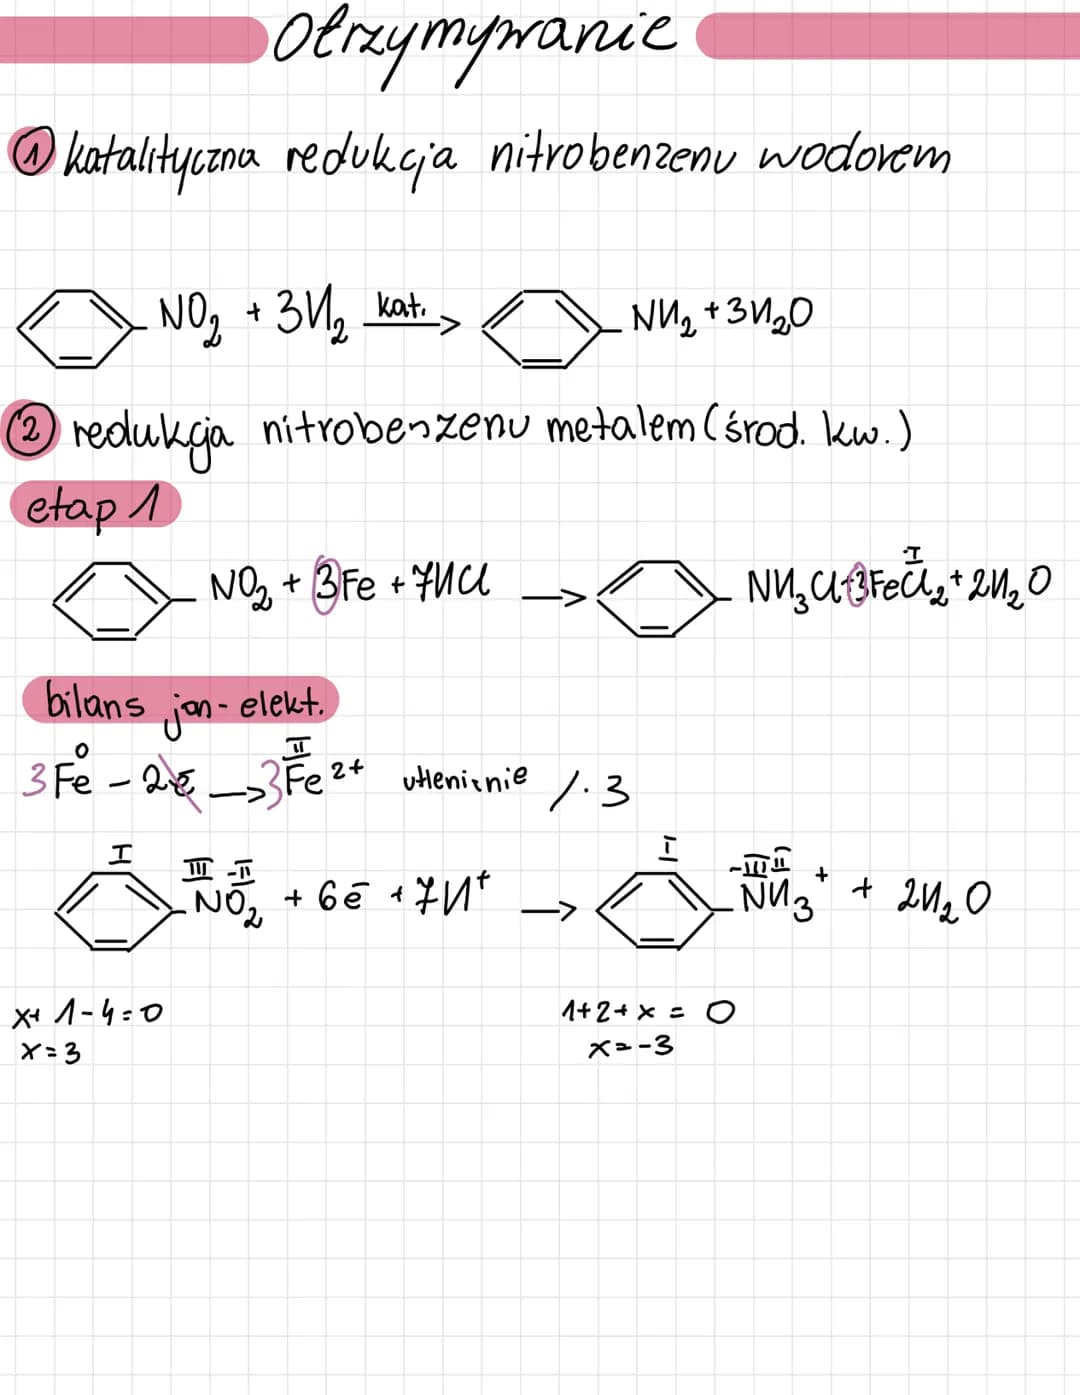 Otrzymywanie
① katalityczna redukcja nitrobenzenu wodorem
NO₂ + 3H₂ kat. → NH₂ + 3H₂O
② redukcja nitrobenzenu metalem (środ. kw.)
etap 1
NO₂ + 3Fe + 7HCl → NH₃Cl + 3FeCl₂ + 2H₂O
-I
bilans jon-elekt.
0 II
3Fe - 2e → 3Fe²⁺ utlenienie /·3
I III -II I -III I
NO₂ + 6ē + 7H⁺ → NH₃⁺ + 2H₂O
x+1-4=0 1+2+x=0
x=3 x=-3